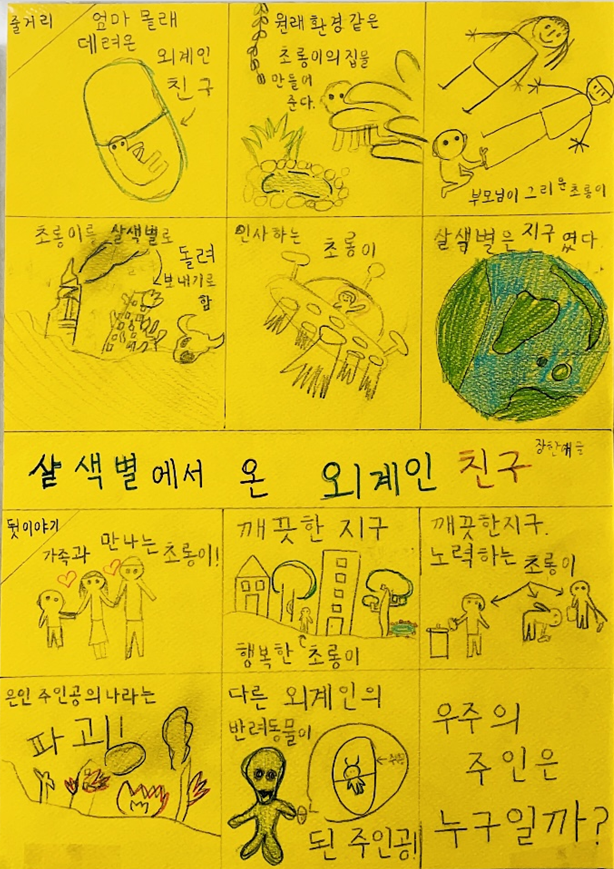 줄거리
엄마 몰래
데려온
외계인
친구
원래 환경 같은
초롱이의 집을
만들어
준다.
부모님이 그리운 초롱이
초롱이를 살색별로
돌려
보내기로
함
인사하는 초롱이
살색별은 지구였다
살색별에서 온 외계인 친구
뒷이야기
가족과 만나는 초롱이!
깨끗한 지구
행복한 초롱이
깨끗한지구.
노력하는 초롱이
은인 주인공의 나라는
파괴!!
다른 외계인의
반려동물이
된 주인공!
우주의
주인은
누구일까?